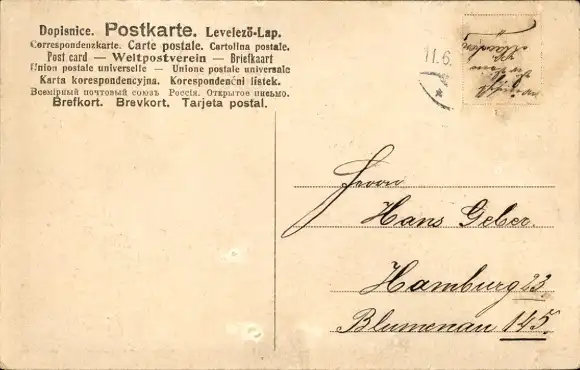 Dopisnice. Postkarte. Levelező-Lap.
Correspondenzkarte. Carte postale. Cartolina postale.
Post card — Weltpostverein — Briefkaart
Union postale universelle — Unione postale universale
Karta korespondencyjna. Korespondenční listek.
Всемірный почтовый союзъ Россія. Открытое письмо.
Brefkort. Brevkort. Tarjeta postal.
11.6.
Herrn
Hans Geber.
Hamburg 23.
Blumenau 145.